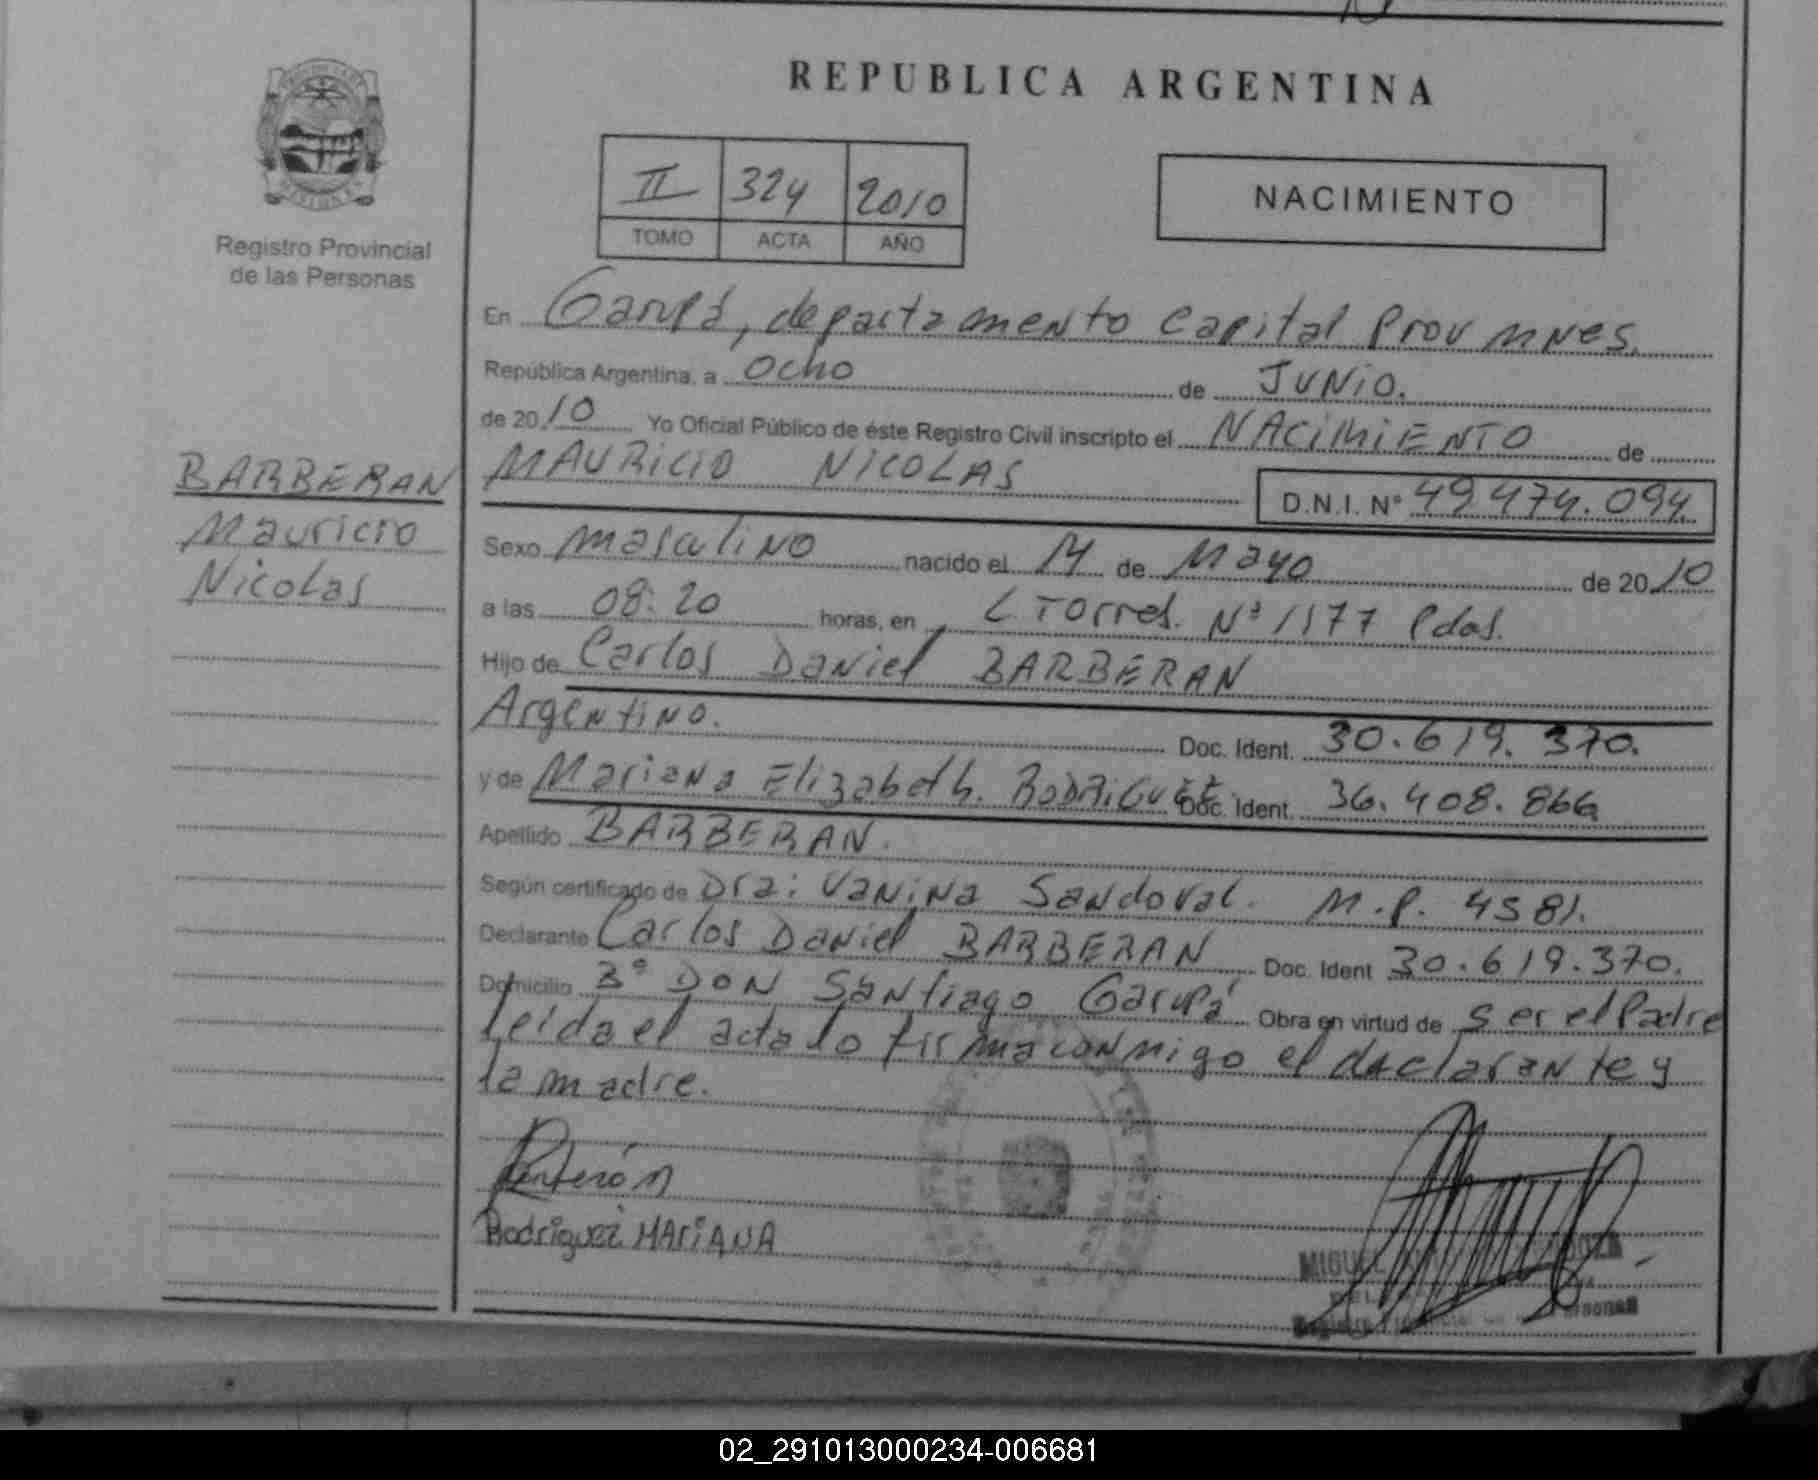 REPUBLICA ARGENTINA
II 324 2010
TOMO ACTA AÑO
NACIMIENTO
Registro Provincial
de las Personas
En Garupá, departamento Capital Prov Mnes.
República Argentina, a ocho de JUNIO.
de 2010 Yo Oficial Público de éste Registro Civil inscripto el NACIMIENTO de
BARBERAN
Mauricio
Nicolas
MAURICIO NICOLAS D.N.I. N° 49.474.094
Sexo masculino nacido el 14 de Mayo de 2010
a las 08:20 horas, en L Torres. N° 1177 Pdas.
Hijo de Carlos Daniel BARBERAN
Argentino. Doc. Ident. 30.619.370.
y de Mariana Elizabeth. RODRIGUEZ Doc. Ident. 36.408.866
Apellido BARBERAN.
Según certificado de Dra: Vanina Sandoval. M.P. 4581.
Declarante Carlos Daniel BARBERAN Doc. Ident 30.619.370.
Domicilio B° DON Santiago Garupá Obra en virtud de ser el Padre
leida el acta lo firma conmigo el declarante y
la madre.
Rodriguez MARIANA
MIGUEL
02_291013000234-006681